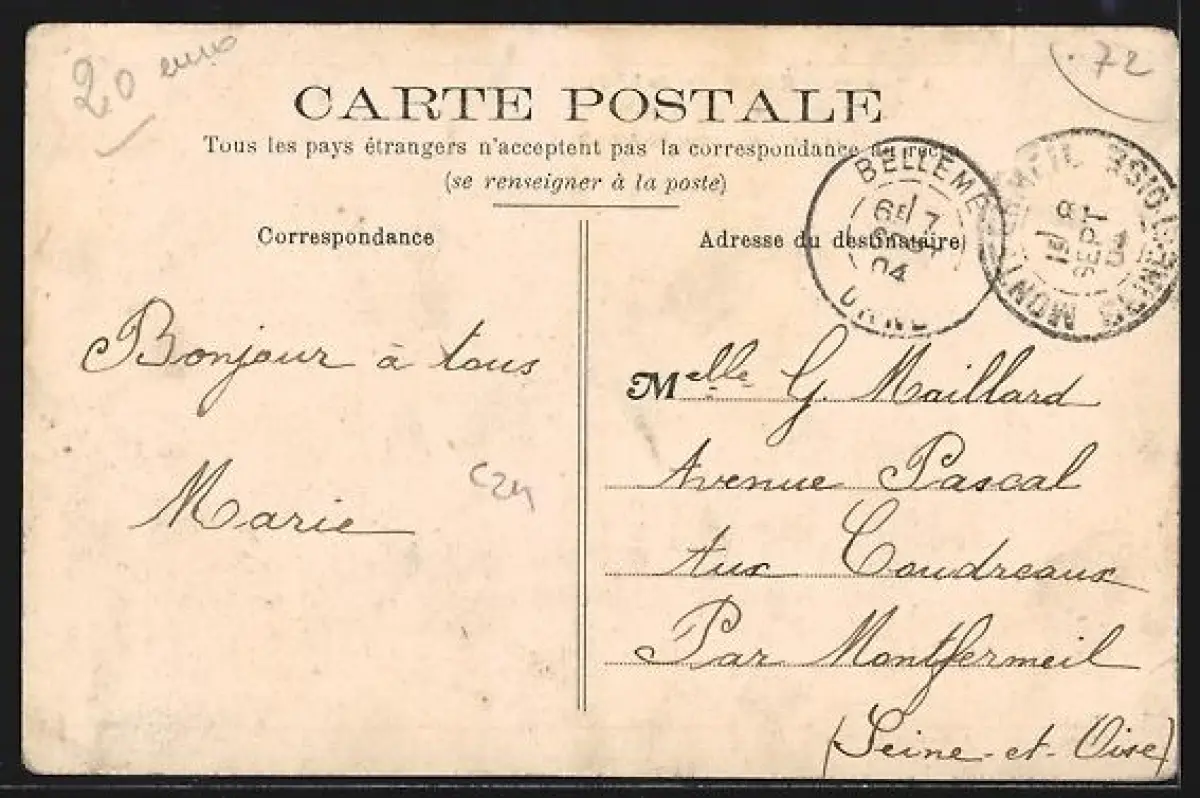 20 euros
72
CARTE POSTALE
Tous les pays étrangers n'acceptent pas la correspondance au recto
(se renseigner à la poste)
BELLEME
7
04
ORNE
MONTFERMEIL
SEINE-ET-OISE
8
SEPT
04
Correspondance
Adresse du destinataire
Bonjour à tous
Marie
Melle G. Maillard
Avenue Pascal
Aux Coudreaux
Par Montfermeil
(Seine-et-Oise)